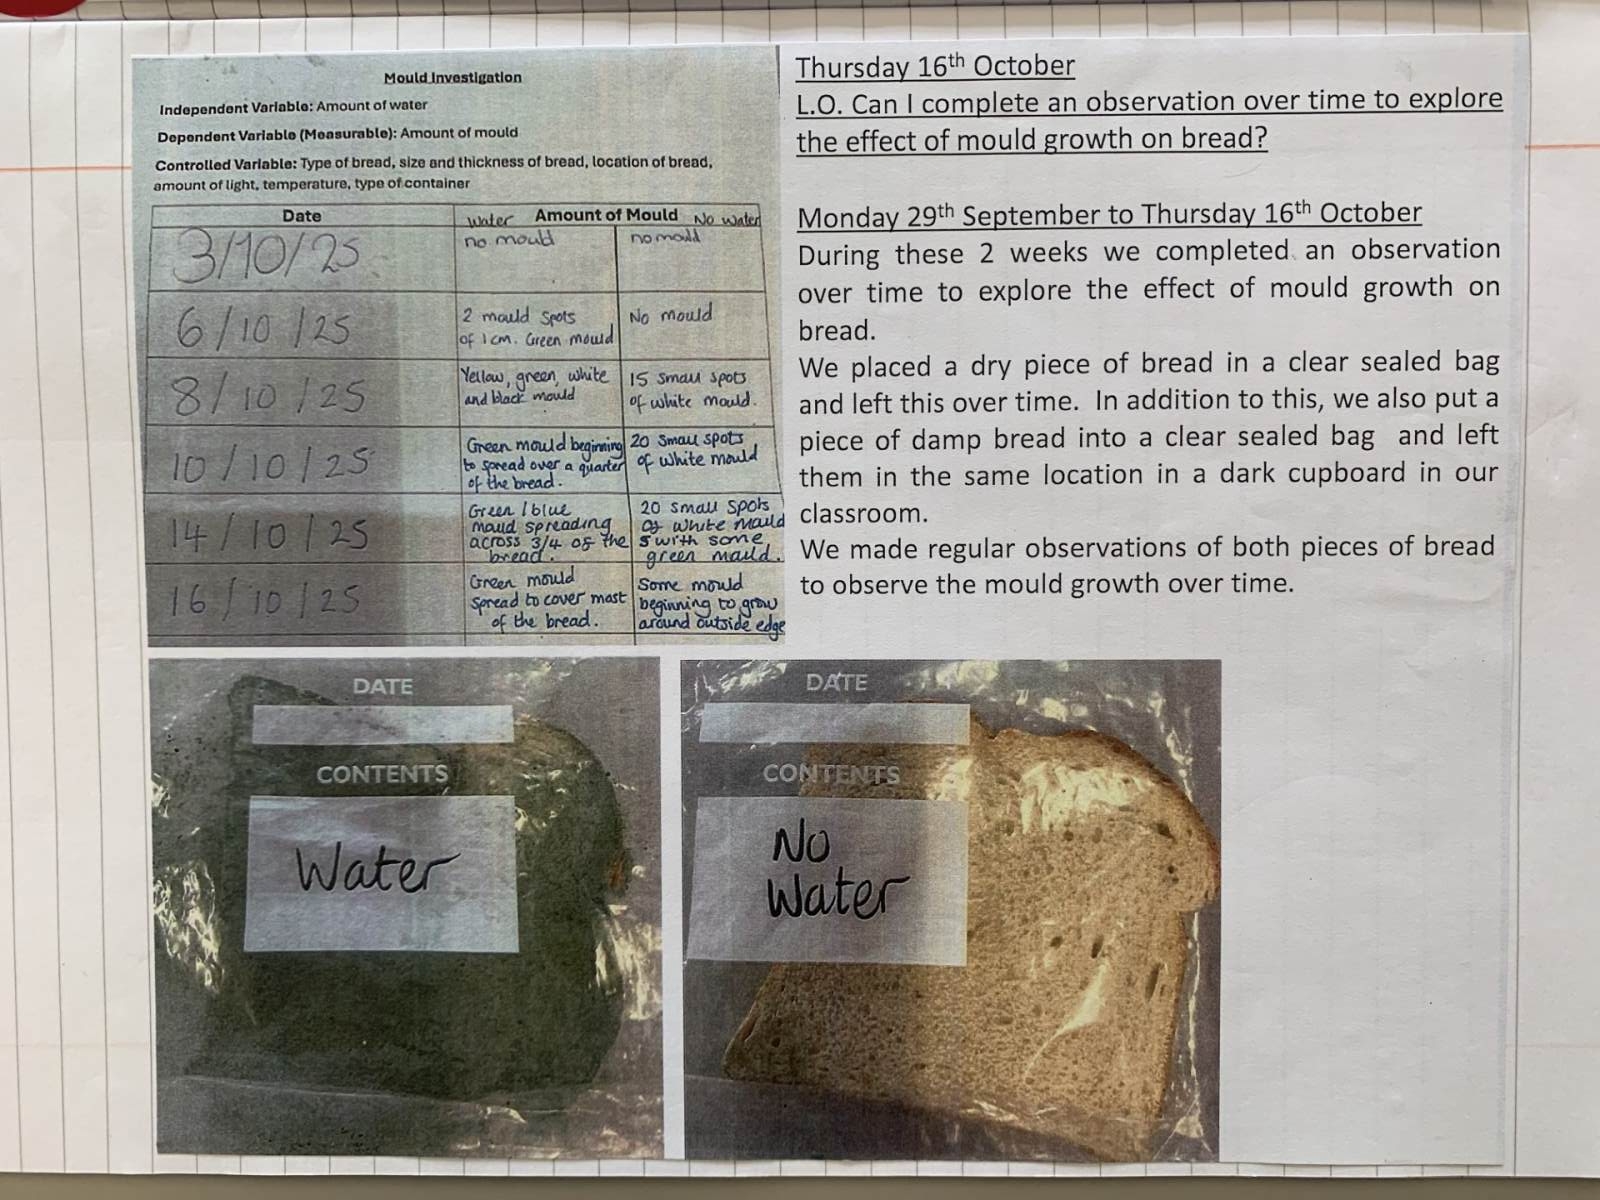 Mould Investigation
Independent Variable: Amount of water
Dependent Variable (Measurable): Amount of mould
Controlled Variable: Type of bread, size and thickness of bread, location of bread,
amount of light, temperature, type of container
Date
Water Amount of Mould No water
3/10/25
no mould
no mould
6/10/25
2 mould spots
of 1cm. Green mould
No mould
8/10/25
Yellow, green, white
and black mould
15 small spots
of white mould.
10/10/25
Green mould beginning
to spread over a quarter
of the bread.
20 small spots
of white mould
14/10/25
Green/blue
mould spreading
across 3/4 of the
bread.
20 small spots
of white mould
5 with some
green mould.
16/10/25
Green mould
spread to cover most
of the bread.
Some mould
beginning to grow
around outside edge
Thursday 16th October
L.O. Can I complete an observation over time to explore
the effect of mould growth on bread?
Monday 29th September to Thursday 16th October
During these 2 weeks we completed an observation
over time to explore the effect of mould growth on
bread.
We placed a dry piece of bread in a clear sealed bag
and left this over time. In addition to this, we also put a
piece of damp bread into a clear sealed bag and left
them in the same location in a dark cupboard in our
classroom.
We made regular observations of both pieces of bread
to observe the mould growth over time.
DATE
CONTENTS
Water
DATE
CONTENTS
No
Water